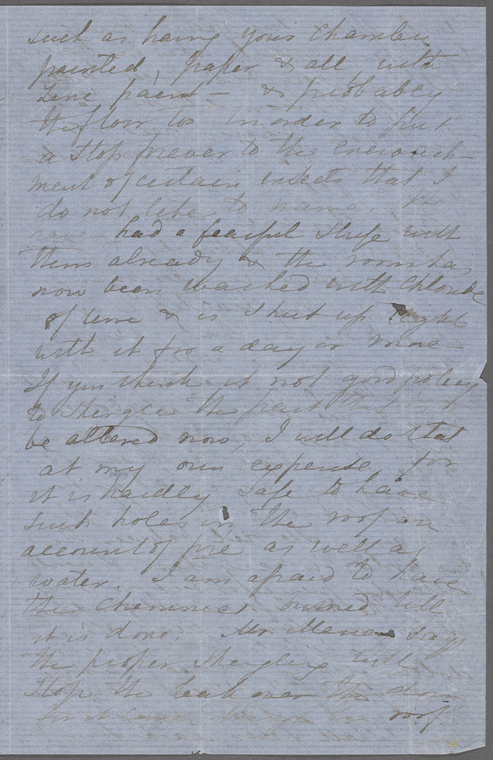 such as having your chamber
painted, paper & all with
zinc paint — & probably
the floor too in order to put
a stop forever to the encroach-
ment of certain insects that I
do not like to name. We
have had a fearful strife with
them already & the room has
now been washed with Chloride
of lime & is shut up tight
with it for a day or more
If you think it not good policy
to shingle the part that
be altered now, I will do that
at my own expense, for
it is hardly safe to have
such holes in the roof on
account of fire as well as
water. I am afraid to have
the chimneas burned till
it is done. Mr. says
the proper shingling will
stop the leak over the door
roof